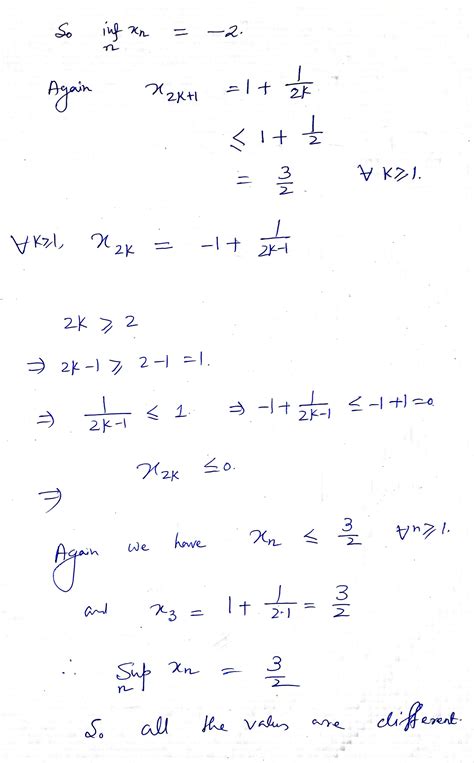 So inf xₙ = -2.
n
Again x₂ₖ₊₁ = 1 + 1/2k
≤ 1 + 1/2
= 3/2 ∀ k≥1.
∀k≥1, x₂ₖ = -1 + 1/2k-1
2k ≥ 2
⇒ 2k-1 ≥ 2-1 = 1.
⇒ 1/2k-1 ≤ 1. ⇒ -1 + 1/2k-1 ≤ -1+1=0.
⇒ x₂ₖ ≤ 0.
Again we have xₙ ≤ 3/2 ∀n≥1.
and x₃ = 1 + 1/2·1 = 3/2
∴ Sup xₙ = 3/2
n
So all the values are different.